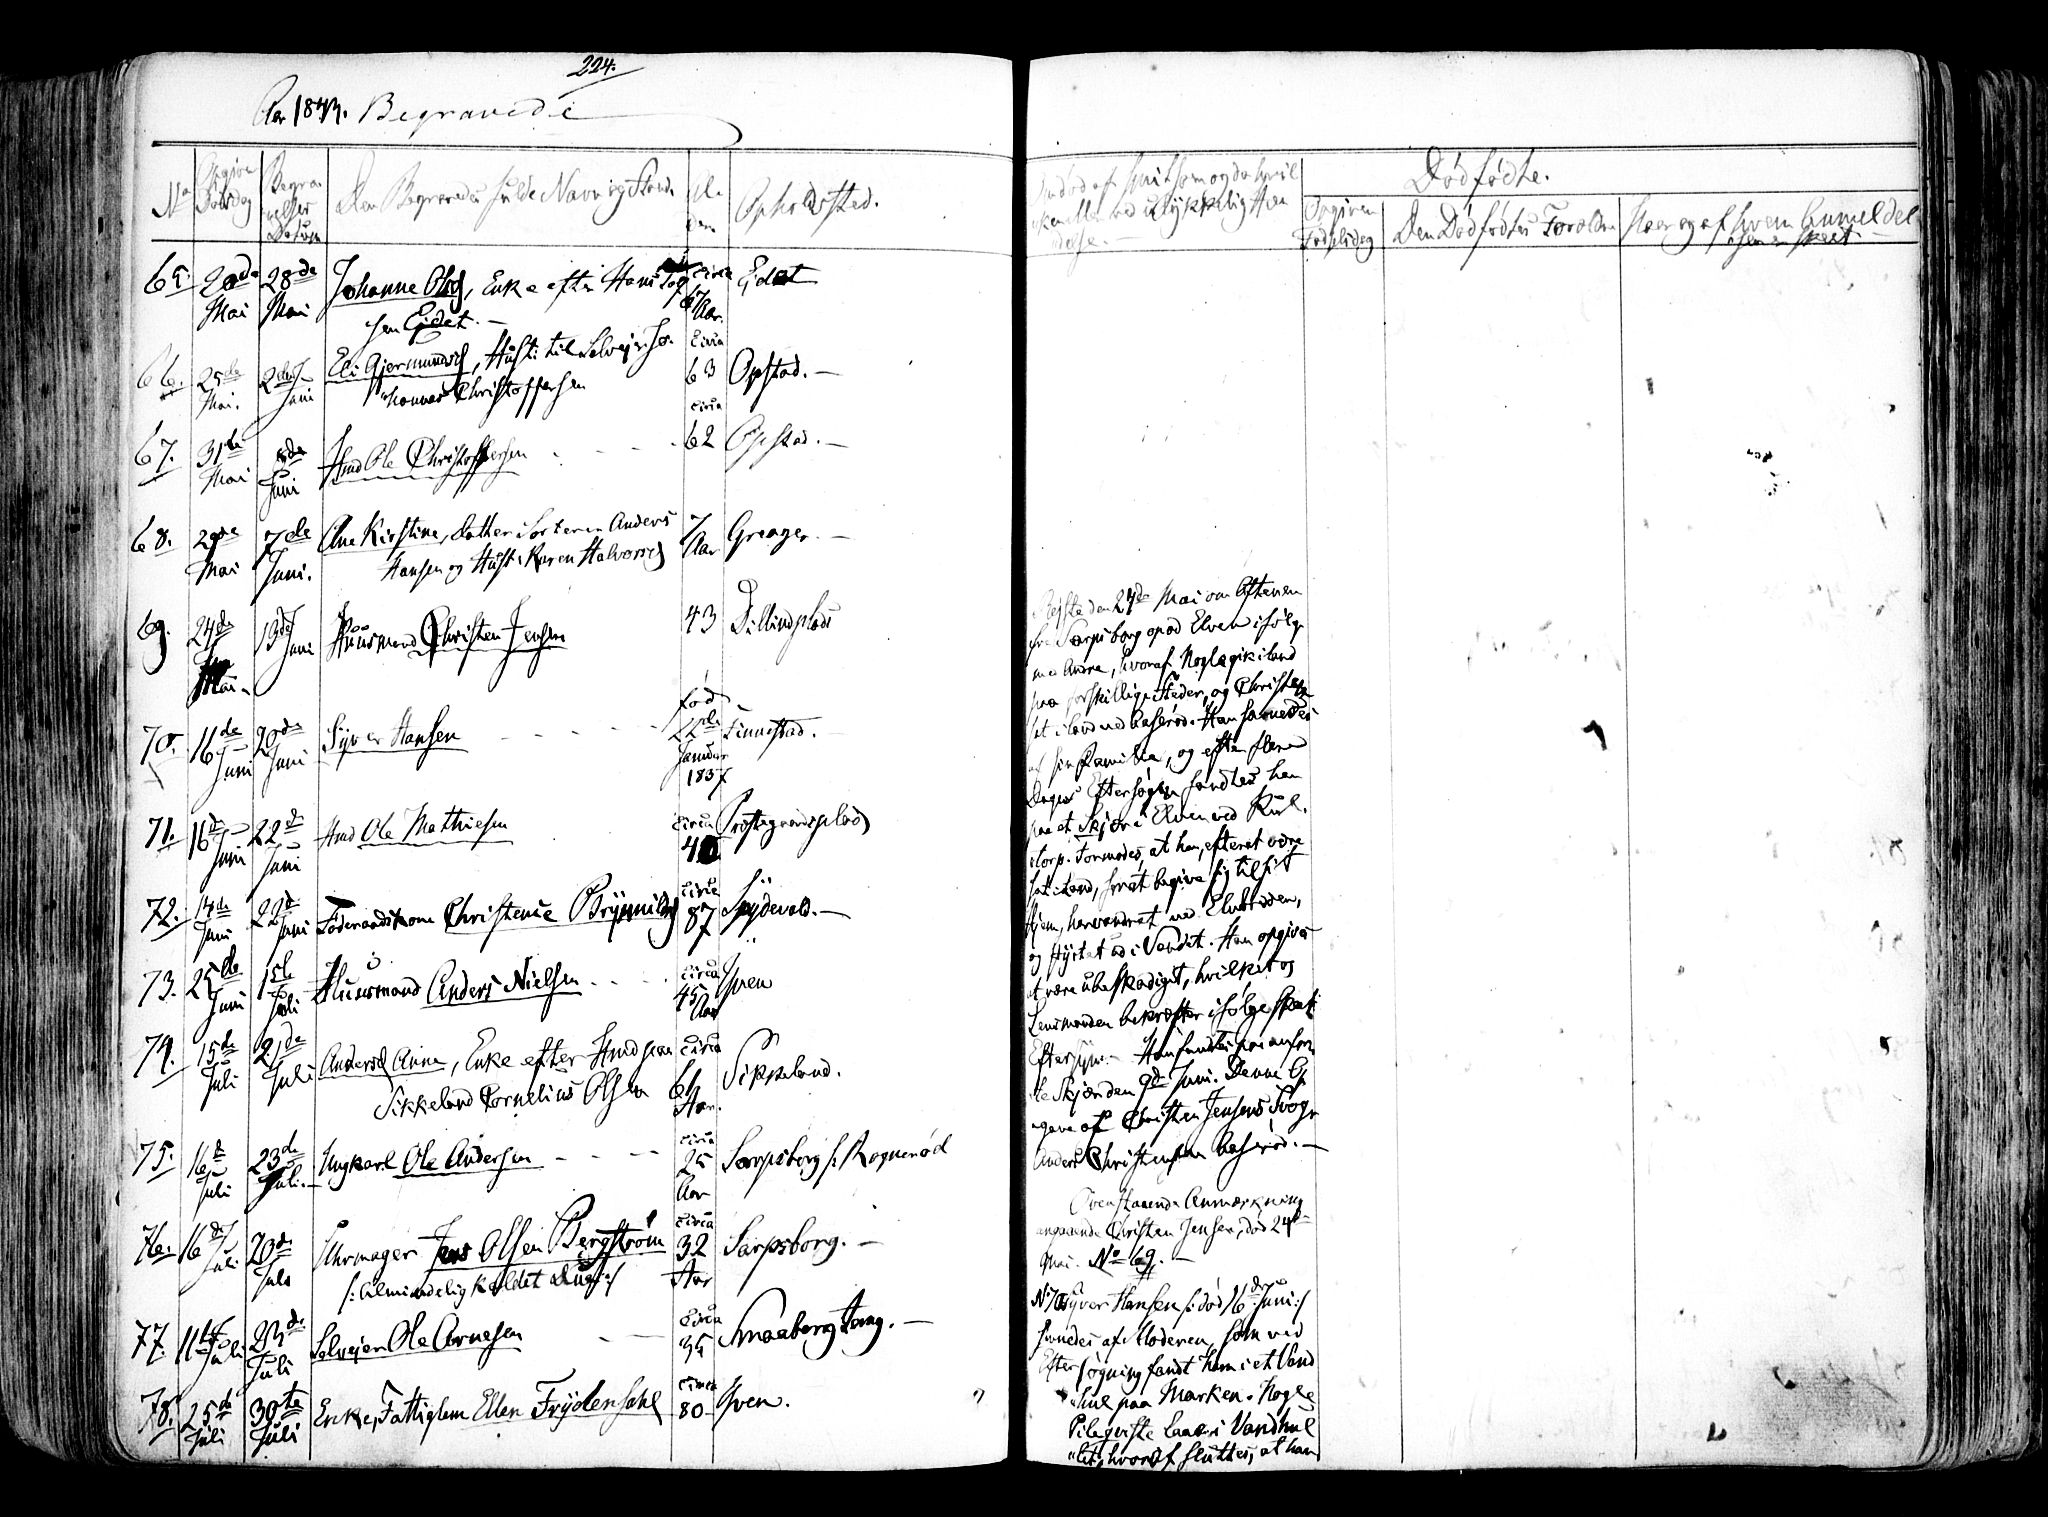 224.
Aar 1843. Begravede
No
Opgiven Dødsdag
Begravelses Datum
Den Begravedes fulde Navn og Stand
Alder
Opholdssted.
65. 20de Mai 28de Mai Johanne Olsd, Enke efter Hans
sen Eidet. — circa 67 Aar. Eidet
66. 25de Mai. 2den Juni Eli Gjermundsd, Hustr. til Selveier Jo-
hannes Christoffersen circa 63 Opstad. —
67. 31te Mai 8de Juni Hmd Ole Christoffersen circa 62 Opstad. —
68. 29de Mai 7de Juni. Ane Kirstine, datter Anders
Hansen og Hust. Karen Halvorsd 7 Aar Greager —
69. 24de Mai 13de Juni Huusmand Christen Jensen 43 Dillindplads
70. 16de Juni 20de Juni Syver Hansen fød 22de Januar 1837 Finnestad. —
71. 16de Juni 22de Juni Hmd Ole Mathiesen circa 40 Præstegaardsplads
72. 14de Juni 22de Juni Føderaadskone Christense Brynnildsd circa 87 Spydevold. —
73. 25de Juni 1ste Juli Huusmand Anders Nielsen circa 45 Aar Yven
74. 15de Juli 21de Juli Andersd Anna, Enke efter Hmd paa
Sikkeland Cornelius Olsen circa 66 Aar. Sikkeland.
75. 16de Juli 23de Juli. Ungkarl Ole Andersen circa 25 Aar Sarpsborg f. Rognerød
76. 16de Juli 20de Juli Uhrmager Jens Olsen Bergstrøm
/: Almindelig kaldet :/ circa 32 Aar Sarpsborg. —
77. 11te Juli 23de Juli Selveier Ole Arnesen circa 35 Smaaberg Tang. —
78. 25de Juli 30te Juli Enke, Fattiglem Ellen Frydensahl circa 80 Yven.
ved ulykkelig Hændelse.
Dødfødte.
Opgiven Fødselsdag
Den Dødfødtes Forældre
Naar og af hvem Anmeldelsen er skeet.
Reiste den 24de Mai om Aftenen
fra Sarpsborg opad Elven ifølge
med Andre, hvoraf Nogle gik iland
paa forskjellige Steder, og Christen
sat iland ved Baserød. Han savnedes
af sin Familie, og efter flere
Dages Eftersøgen fandtes han
paa et Skjær i Elven ved Kurl-
storp. Formodes, at han, efter at være
sat i Land, for at begive sig til sit
Hjem, har vandret ved Elvbredden,
og styrtet ud i Vandet. Han opgives
at være ubeskadiget, hvilket og
Lensmanden bekræfter ifølge skeet
Eftersyn. — Han fandtes paa anfør-
te Skjær den 9de Juni. Denne Op-
gave af Christen Jensens Svoger
Anders Christensen Baserød. —
Ovenstaaende Anmærkning
angaaende Christen Jensen, død 24de
Mai. No 69. —
No 70 Syver Hansen /: død 16de Juni :/
savnedes af Moderen, som ved
Eftersøgning fandt ham i et Vand-
hul paa Marken. Nogle
Pileqviste laae i Vandhul-
let, hvoraf sluttes, at han